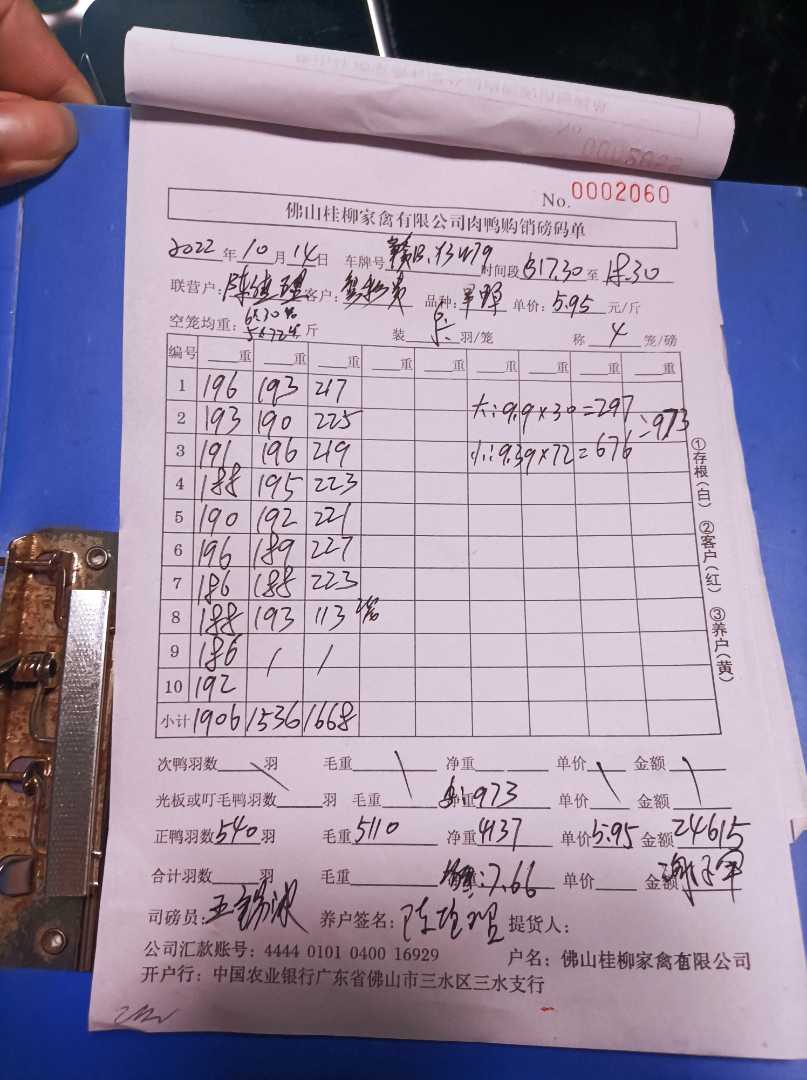 No. 0002060
佛山桂柳家禽有限公司肉鸭购销磅码单
2022年10月14日 车牌号 赣B.13479 时间段 17.30至18.30
联营户: 客户: 品种: 单价: 5.95 元/斤
空笼均重: 斤 装 羽/笼 称 4 笼/磅
编号 重 重 重 重 重 重 重 重 重
1 196 193 217
2 193 190 225 大:9.9×30=297 =973
3 191 196 219 小:9.39×72=676
4 188 195 223
5 190 192 221
6 196 189 227
7 186 188 223
8 188 193 113 2笼
9 186 / /
10 192
小计 1906 1536 1668
①存根(白) ②客户(红) ③养户(黄)
次鸭羽数 羽 毛重 净重 单价 金额
光板或叮毛鸭羽数 羽 毛重 净重 973 单价 金额
正鸭羽数 540 羽 毛重 5110 净重 4137 单价 5.95 金额 24615
合计羽数 羽 毛重 7.66 单价 金额
司磅员: 养户签名: 提货人:
公司汇款账号: 4444 0101 0400 16929 户名: 佛山桂柳家禽有限公司
开户行: 中国农业银行广东省佛山市三水区三水支行